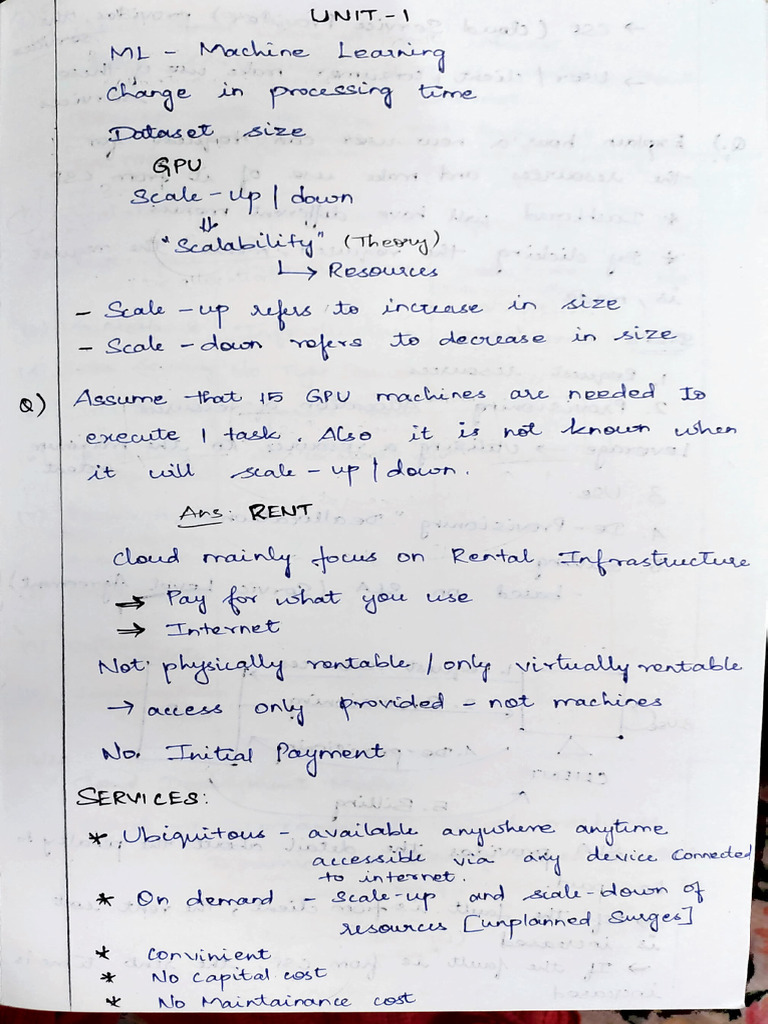 UNIT.-1
ML - Machine Learning
change in processing time
Dataset size
GPU
Scale-up/down
⇓
"Scalability" (Theory)
↳ Resources
- Scale-up refers to increase in size
- Scale-down refers to decrease in size
Q) Assume that 15 GPU machines are needed to
execute 1 task. Also it is not known when
it will scale-up/down.
Ans: RENT
Cloud mainly focus on Rental Infrastructure
⇒ Pay for what you use
⇒ Internet
Not physically rentable / only virtually rentable
→ access only provided - not machines
No. Initial Payment
SERVICES:
* Ubiquitous - available anywhere anytime
accessible via any device connected
to internet.
* On demand - scale-up and scale-down of
resources [unplanned Surges]
* Convinient
* No capital cost
* No Maintainance cost